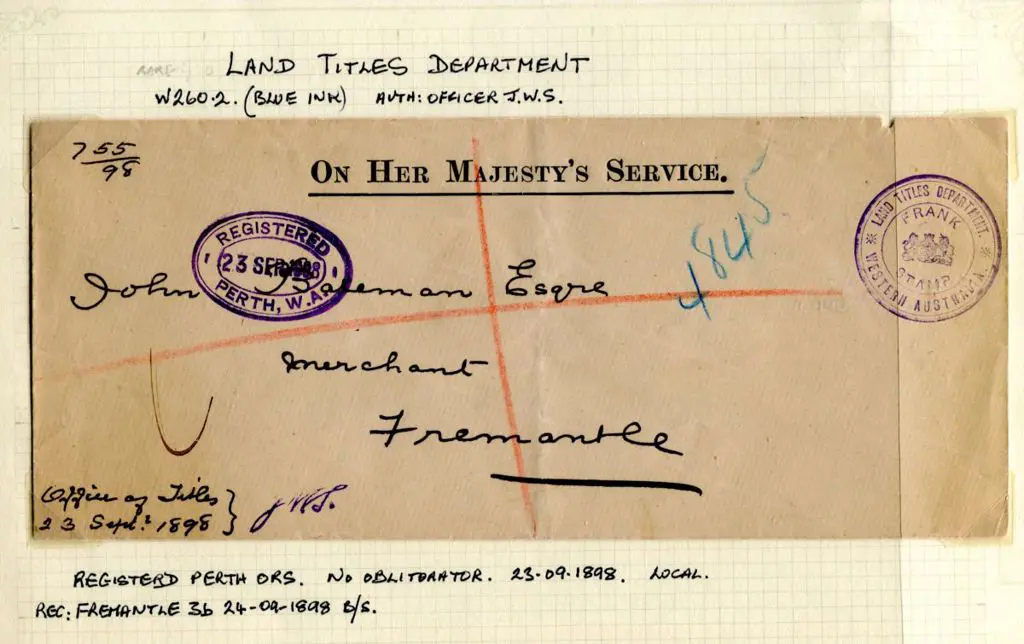 RARE
LAND TITLES DEPARTMENT
W260.2. (BLUE INK) AUTH: OFFICER J.W.S.
755
98
ON HER MAJESTY'S SERVICE.
4845
LAND TITLES DEPARTMENT.
FRANK
STAMP
WESTERN AUSTRALIA.
REGISTERED
23 SEP 1898
PERTH, W.A.
John Bateman Esqre
Merchant
Fremantle
Office of Titles
23 Sept. 1898
JWS.
REGISTERD PERTH ORS. NO OBLITORATOR. 23-09-1898. LOCAL.
REC: FREMANTLE 3b 24-09-1898 B/S.